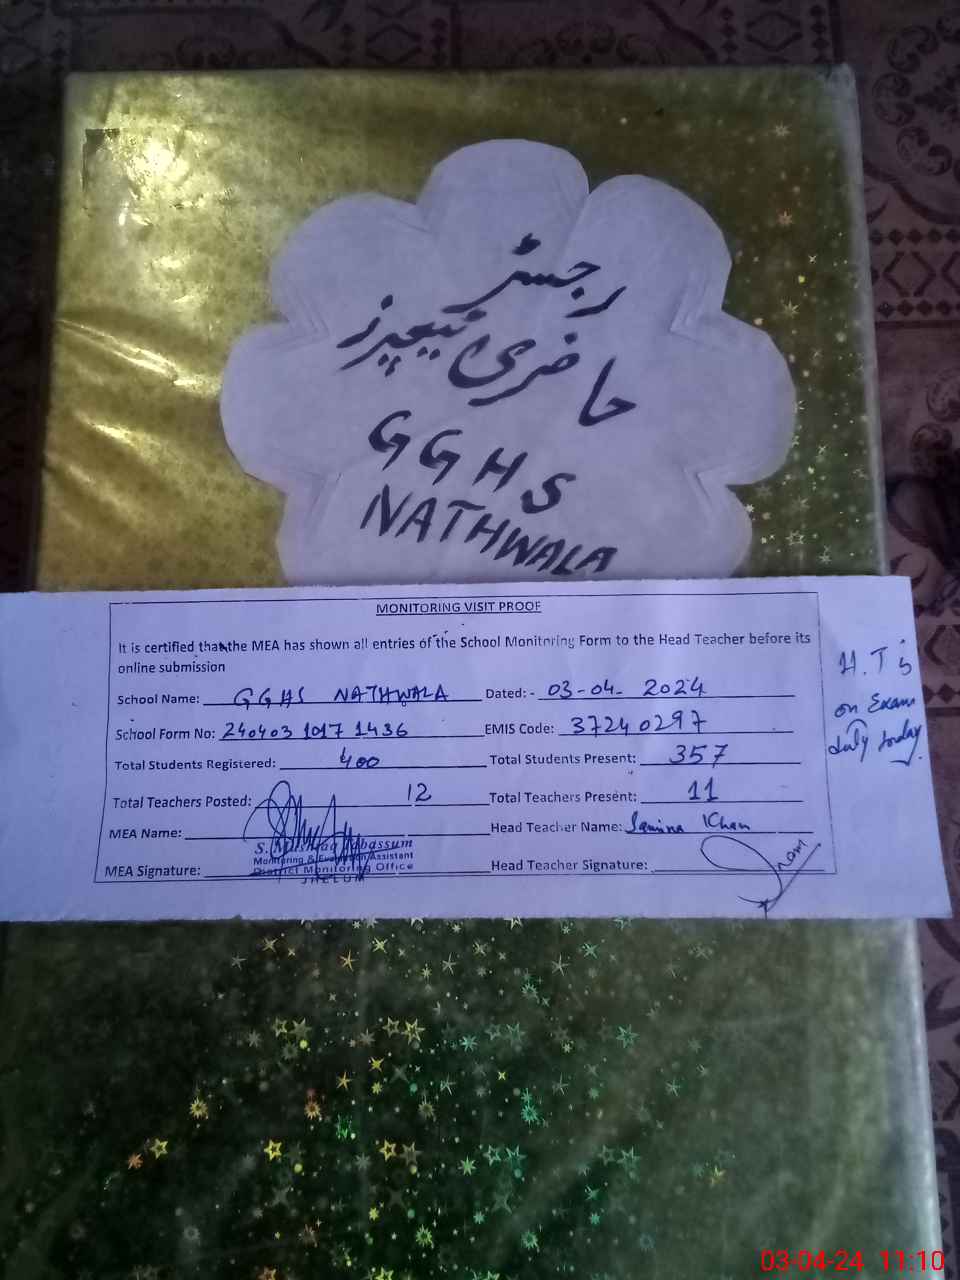 رجسٹر
حاضری ٹیچرز
GGHS
NATHWALA
MONITORING VISIT PROOF
It is certified that the MEA has shown all entries of the School Monitoring Form to the Head Teacher before its
online submission
School Name: GGHS NATHWALA Dated: - 03-04-2024
School Form No: 240403 1017 1436 EMIS Code: 37240297
Total Students Registered: 400 Total Students Present: 357
Total Teachers Posted: 12 Total Teachers Present: 11
MEA Name: Head Teacher Name: Samina Khan
S. Mushtaq Tabassum
Monitoring & Evaluation Assistant
District Monitoring Office
JHELUM
MEA Signature: Head Teacher Signature:
H.T is
on Exam
duty today.
03-04-24 11:10